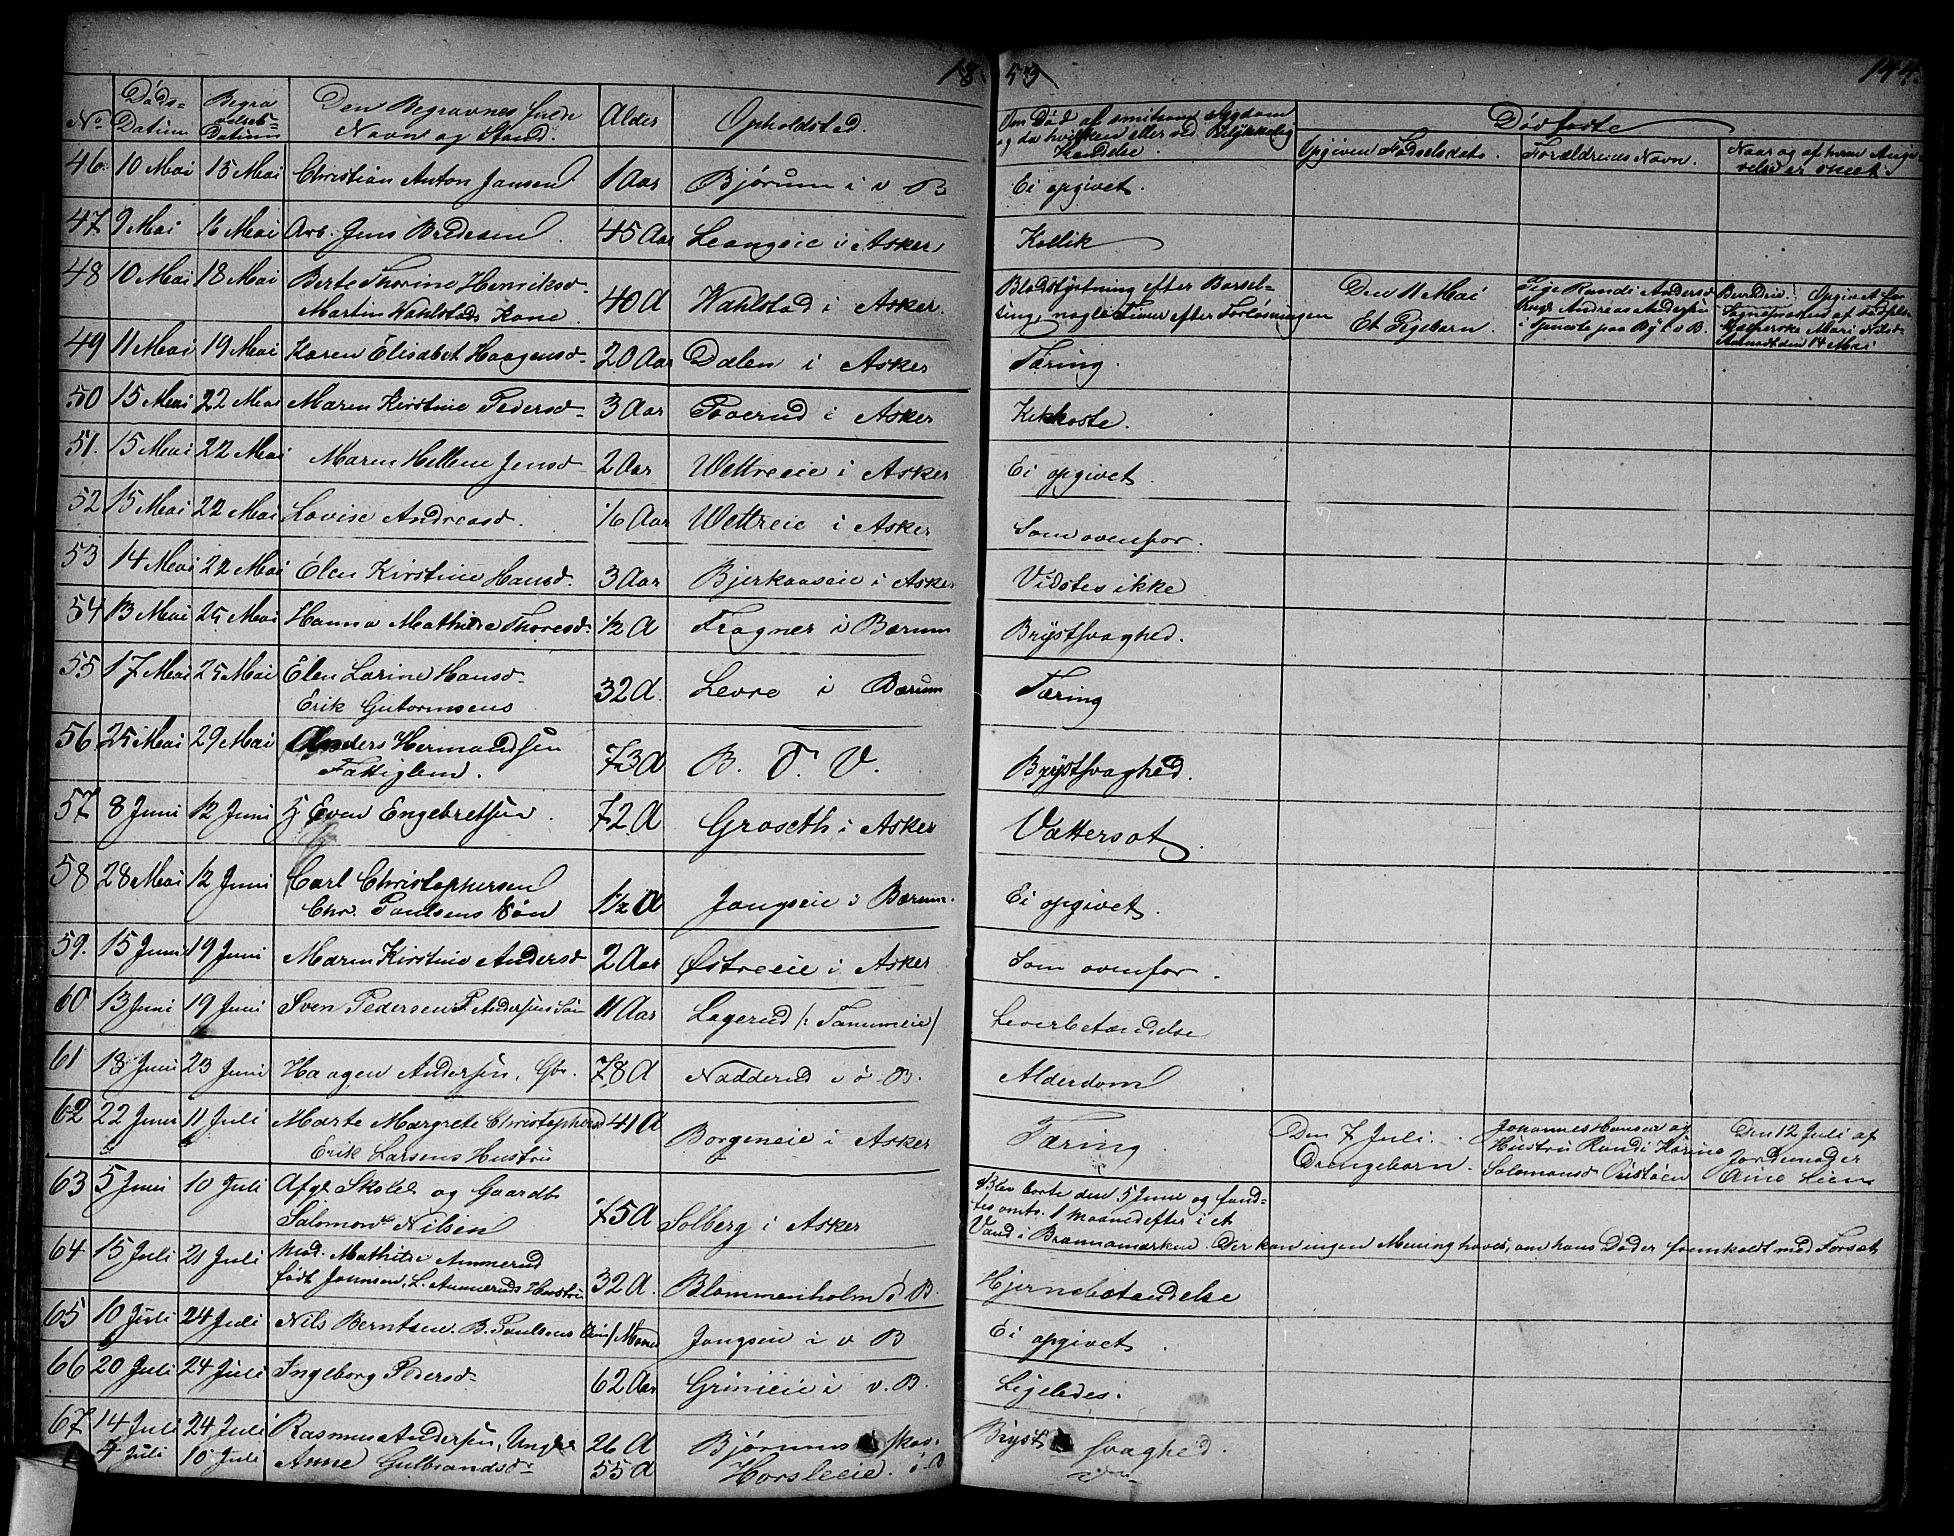 18 53 144.
No Døds-Datum Begravelses-Datum Den Begravnes fulde Navn og Stand. Alder Opholdsted. Om Død af smitsom Sygdom og da hvilken eller ved Ulykkelig Hændelse. Dødfødte
Opgiven Fødselsdato. Forældrenes Navn. Naar og af hvem Angivelse er skeet.
46. 10 Mai 15 Mai Christian Anton Jansen 1 Aar Bjørum i v B Ei opgivet.
47 9 Mai 16 Mai Arb. Jens Bredesen 45 Aar Leangeie i Asker Kollik
48 10 Mai 18 Mai Berte Thorine Henriksd- 40 A Wahlstad i Asker. Blodstyrtning efter Barsel-
Martin Wahlstads Kone. seng, nogle Timer efter Forløsningen
Den 11 Mai Et Pigebarn. Pige Randi Andersd Ungk Andreas Andersen i Tjeneste paa By i v B.
Opgivet for Sognepræsten af Mari Nilsd den 14 Mai
49 11 Mai 19 Mai Karen Elisabet Haagensd- 20 Aar Dælen i Asker Tæring.
50 15 Mai 22 Mai Maren Kirstine Pedersd- 3 Aar i Asker Kikhoste.
51. 15 Mai 22 Mai Maren Hellene Jensd 2 Aar Wettreeie i Asker Ei opgivet.
52 15 Mai 22 Mai Lovise Andreasd. 1/6 Aar Wettreie i Asker Som ovenfor.
53 14 Mai 22 Mai Elen Kirstine Hansd. 3 Aar Bjerkaaseie i Asker Vidstes ikke
54 13 Mai 25 Mai Hanna Mathilde Thoresd- 1/2 A Fragner i Bærum Brystsvaghed.
55 17 Mai 25 Mai Elen Larine Hansd- 32 A. Levre i Bærum Tæring
Erik Gutormsens
56 25 Mai 29 Mai Anders Hermandsen 73 A B. T. V. Brystsvaghed.
Fattiglem.
57 8 Juni 12 Juni Even Engebretsen. 72 A Groseth i Asker Vattersot.
58 28 Mai 12 Juni Carl Christophersen 1/2 A Jongseie i Bærum. Ei opgivet.
Chr. Paulsens Søn
59. 15 Juni 19 Juni Maren Kirstine Andersd 2 Aar Østreeie i Asker Som ovenfor.
60 13 Juni 19 Juni Sven Pedersen P. Andersens Søn 11 Aar Lagerud /: Tanumeie/ Leverbetændelse
61 13 Juni 23 Juni Haagen Andersen, Gbr. 78 A Nadderud i ø B. Alderdom
62 22 Juni 11 Juli Marte Margrete Christophersd 41 A Borgeneie i Asker Tæring.
Erik Larsens Hustru
Den 7 Juli. Drengebarn. Johannes Hansen og Hustru Randi Karine Salomonsd Den 12 Juli af Jordemoder Lien
63 5 Juni 10 Juli Afg. Skoleh og Gaardb 75 A Solberg i Asker Blev borte den 5 Juni og fand-
Salomon Nilsen tes omtr. 1 Maaned efter i et
Vand i Brønnamarken. Der kan ingen Mening haves, om hans Død er fremkaldt med Forsæt
64 15 Juli 21 Juli Mad. Mathilde Ammerud 32 A. Blommenholm i B. Hjernebetændelse
født Jonnsen, L. Ammeruds Hustru
65 10 Juli 24 Juli Nils Berntsen. B. Paulsens 1 Maaned Jongseie i v B Ei opgivet.
66 20 Juli 24 Juli Ingeborg Pedersd- 62 Aar Grinieie i v. B. Ligeledes.
67 14 Juli 24 Juli Rasmus Andersen, Ungk 26 A Bjørums skov. Bryst svaghed.
4 Juli 10 Juli Anne Gulbrandsd- 55 A Horsleeie. i B